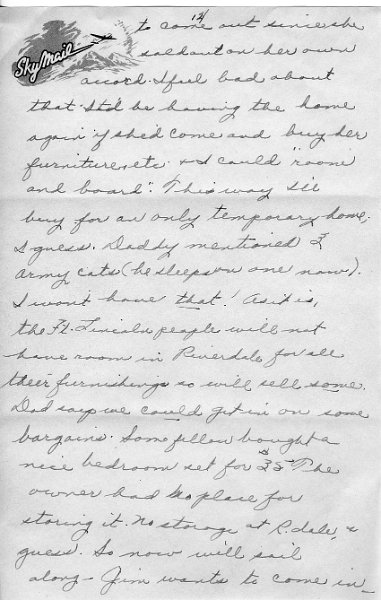 12
Sky Mail
to come out since she
sold out on her own
accord. I feel bad about
that. It'd be having the home
again if she'd come and buy her
furniture, etc. & I could "room
and board". This way I'll
buy for an only temporary home,
I guess. Daddy mentioned 2
Army cots (he sleeps on one now).
I won't have that! As it is,
the Ft. Lincoln people will not
have room in Riverdale for all
their furnishings so will sell some.
Dad says we could get in on some
bargains. Some fellow bought a
nice bedroom set for $35. The
owner had no place for
storing it. No storage at R.dale, I
guess. So now will sail
along - Jim wants to come in -